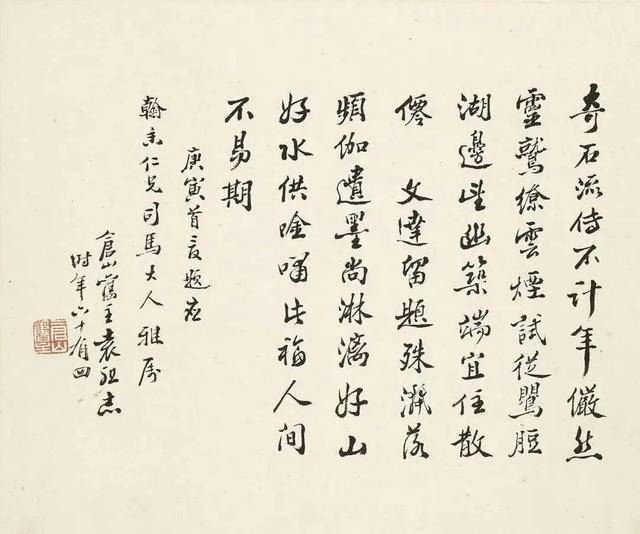 奇石流傳不計年儼然
靈鷲繚雲煙試從鸎脰
湖邊望幽築端宜住散
僊 文達留題殊灑落
頻伽遺墨尚淋漓好山
好水供唫嘯此福人間
不易期
庚寅首夏題應
翰仁兄司馬大人雅屬
倉山舊主袁祖志
時年六十有四